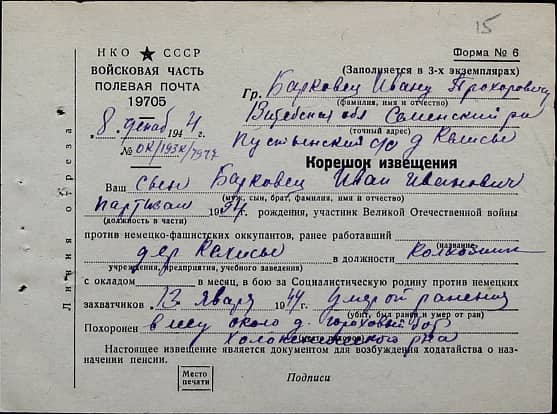 15
НКО ★ СССР
ВОЙСКОВАЯ ЧАСТЬ
ПОЛЕВАЯ ПОЧТА
19705
8 декаб 1944
№ ОК/1938/7977
Форма № 6
(Заполняется в 3-х экземплярах)
Гр. Барковец Ивану Прохоровичу
(фамилия, имя и отчество)
Витебская обл Сеннский р-н
(точный адрес)
Пустынский с/с д
Корешок извещения
Ваш сын Барковец Иван Иванович
(муж, сын, брат, фамилия, имя и отчество)
партизан 1924 г. рождения, участник Великой Отечественной войны
(должность в части)
против немецко-фашистских оккупантов, ранее работавший
(название
дер в должности колхозник
учреждения, предприятия, учебного заведения)
с окладом в месяц, в бою за Социалистическую родину против немецких
захватчиков 13 января 1944 г. умер от ранения
(убит, был ранен и умер от ран)
Похоронен в лесу около д. Гороховый бор
Холопеничского р-на
Настоящее извещение является документом для возбуждения ходатайства о на-
значении пенсии.
Место
печати
Подписи
Линия отреза